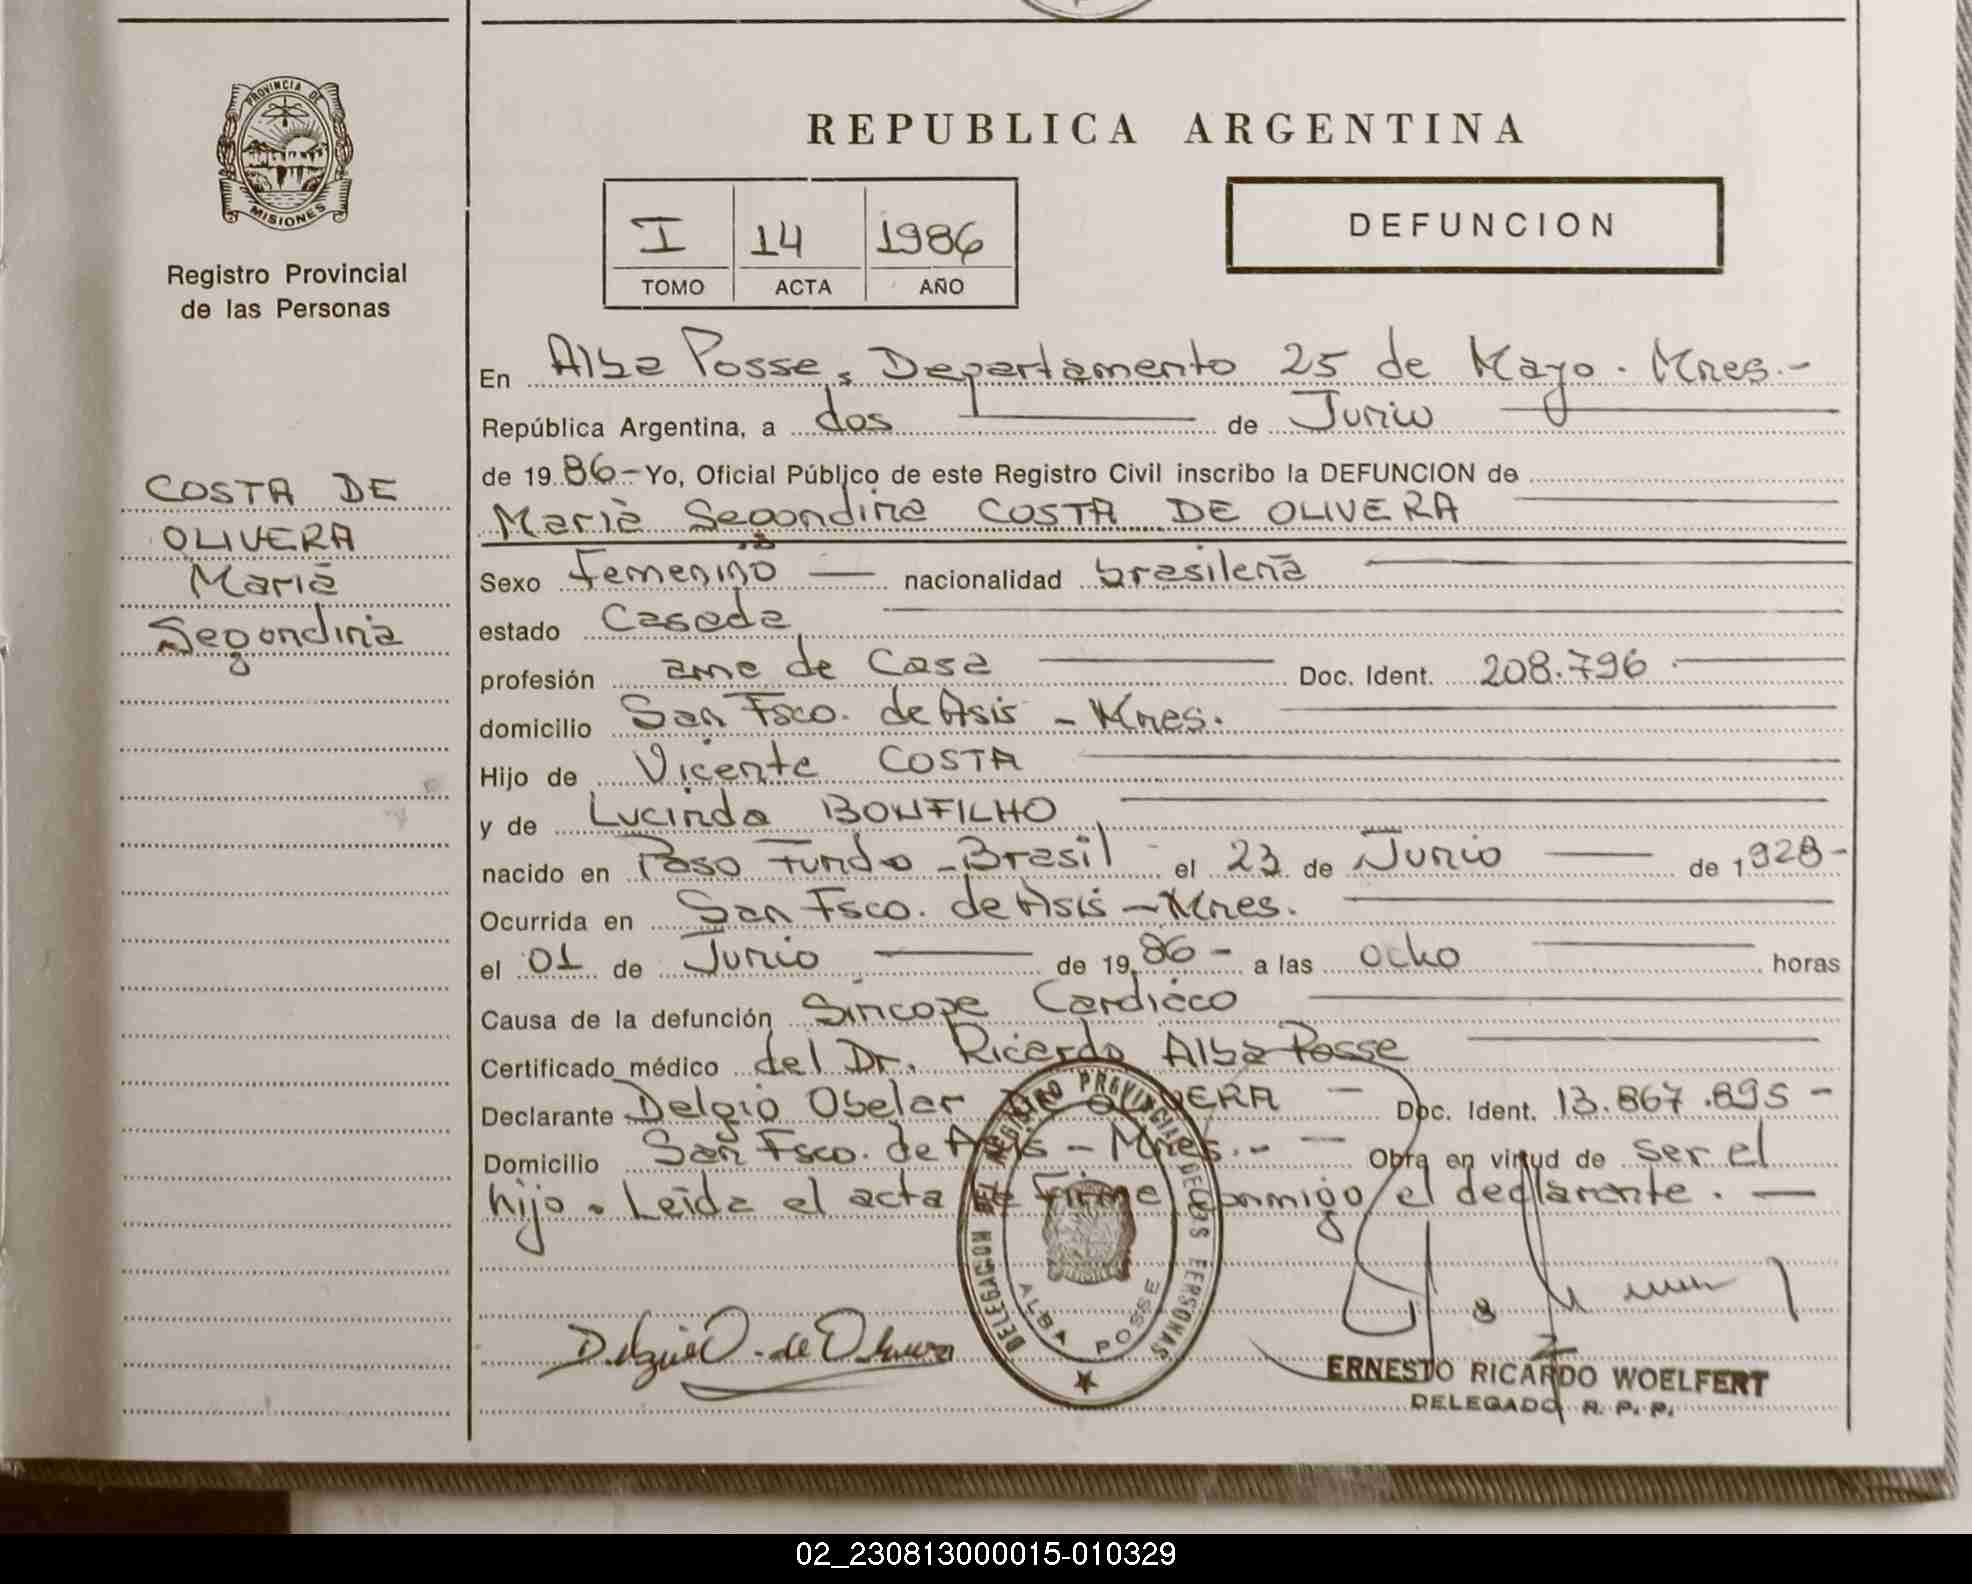 PROVINCIA DE
MISIONES
Registro Provincial
de las Personas
COSTA DE
OLIVERA
María
Segondina
REPUBLICA ARGENTINA
I 14 1986
TOMO ACTA AÑO
DEFUNCION
En Alba Posse, Departamento 25 de Mayo. Mnes.-
República Argentina, a dos de Junio
de 1986- Yo, Oficial Público de este Registro Civil inscribo la DEFUNCION de
María Segondina COSTA DE OLIVERA
Sexo Femenino nacionalidad brasileña
estado Casada
profesión ama de Casa Doc. Ident. 208.796.
domicilio San Fsco. de Asis - Mnes.
Hijo de Vicente COSTA
y de Lucinda BONFILHO
nacido en Paso Fundo - Brasil - el 23 de Junio de 1928-
Ocurrida en San Fsco. de Asis - Mnes.
el 01 de Junio de 1986- a las ocho horas
Causa de la defunción Síncope Cardiáco
Certificado médico del Dr. Ricardo Alba Posse
Declarante Delgio Obelar DE OLIVERA - Doc. Ident. 13.867.895-
Domicilio San Fsco. de Asis - Mnes.- - Obra en virtud de ser el
hijo. Leída el acta la firma conmigo el declarante.-
DELEGACION DEL REGISTRO PROVINCIAL DE LAS PERSONAS
ALBA POSSE
Delgio O. de Olivera
ERNESTO RICARDO WOELFERT
DELEGADO R. P. P.
02_230813000015-010329